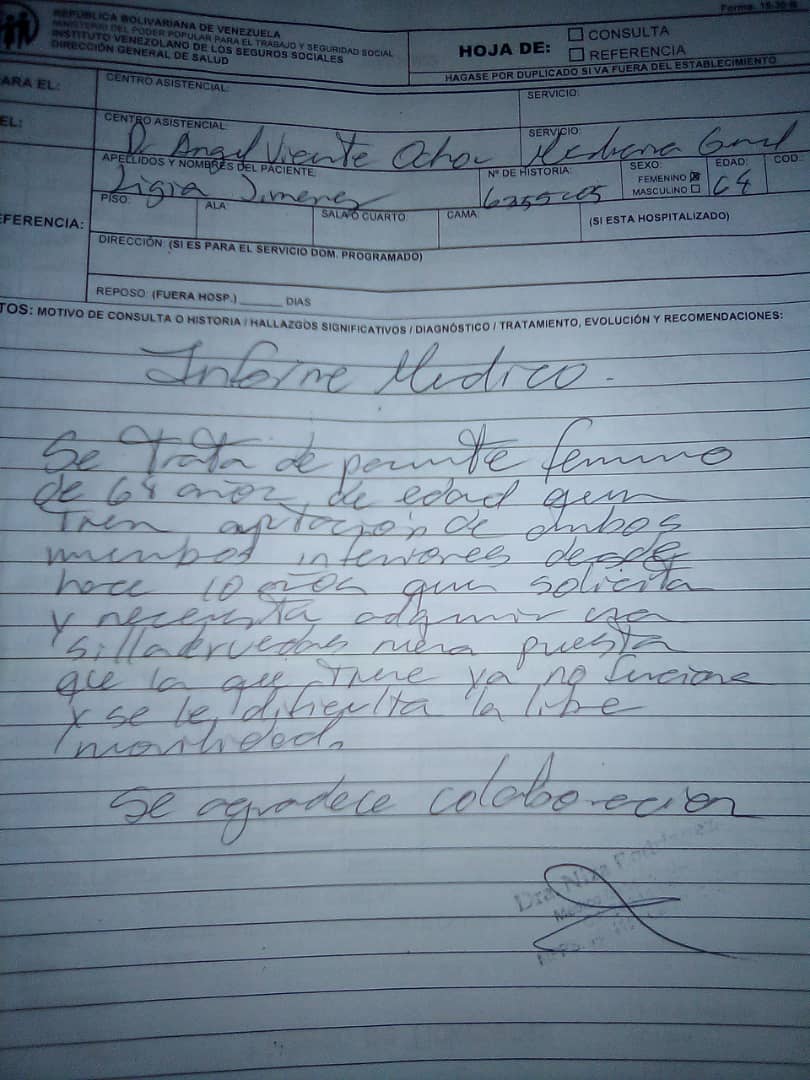 Forma. 15-30-B
REPÚBLICA BOLIVARIANA DE VENEZUELA
MINISTERIO DEL PODER POPULAR PARA EL TRABAJO Y SEGURIDAD SOCIAL
INSTITUTO VENEZOLANO DE LOS SEGUROS SOCIALES
DIRECCIÓN GENERAL DE SALUD
HOJA DE: CONSULTA
REFERENCIA
HAGASE POR DUPLICADO SI VA FUERA DEL ESTABLECIMIENTO
ARA EL: CENTRO ASISTENCIAL: SERVICIO:
EL: CENTRO ASISTENCIAL: SERVICIO:
Dr Angel Viente Ochoa Medicina Gral
APELLIDOS Y NOMBRES DEL PACIENTE: Nº DE HISTORIA: SEXO: FEMENINO MASCULINO EDAD: COD.:
Ligia Jimenez 64
EFERENCIA: PISO: ALA: SALA O CUARTO: CAMA: (SI ESTA HOSPITALIZADO)
DIRECCIÓN: (SI ES PARA EL SERVICIO DOM. PROGRAMADO)
REPOSO: (FUERA HOSP.) ______ DIAS
TOS: MOTIVO DE CONSULTA O HISTORIA / HALLAZGOS SIGNIFICATIVOS / DIAGNÓSTICO / TRATAMIENTO, EVOLUCIÓN Y RECOMENDACIONES:
Informe Medico.
Se trata de paciente femenino
de 64 años de edad quien
tiene de ambos
miembros inferiores desde
hace 10 años quien solicita
y necesita adquirir una
silla de ruedas nueva puesta
que la que tiene ya no funciona
y se le dificulta la libre
movilidad.
Se agradece colaboracion
Dra.